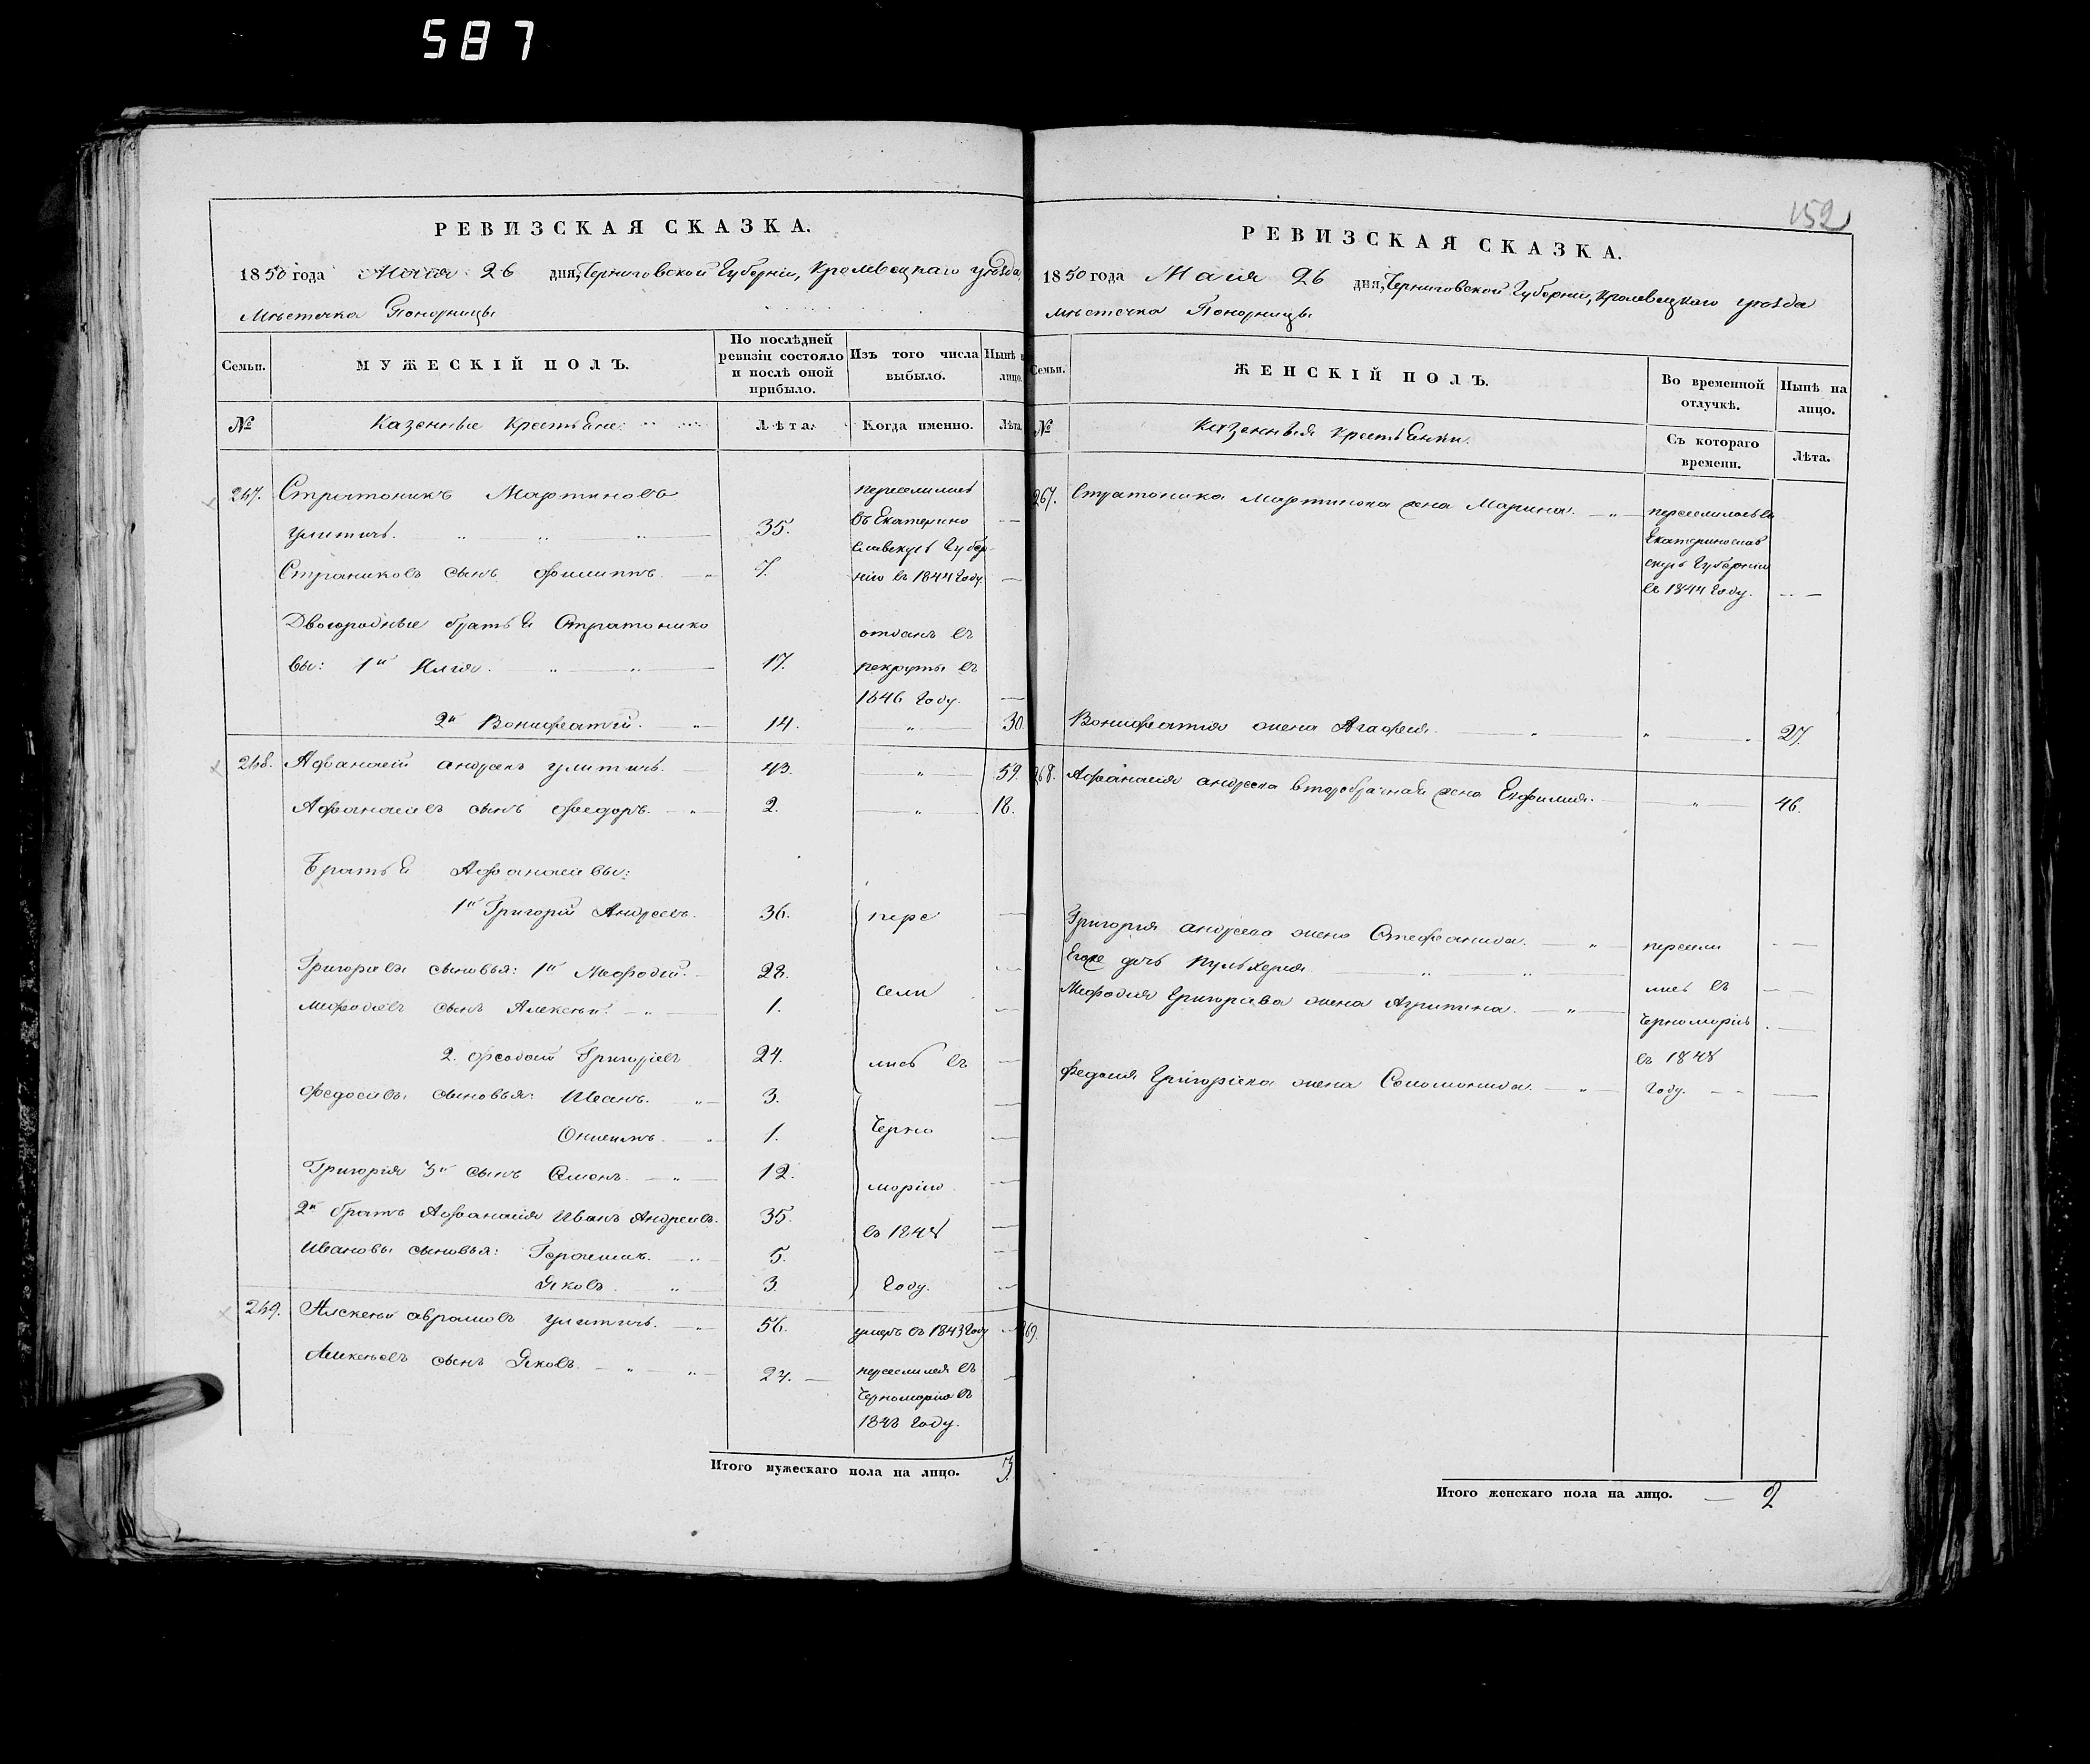 587
РЕВИЗСКАЯ СКАЗКА.
1850 года Маія 26 дня, Черниговской Губерніи, Кролевецкаго уѣзда
Мѣстечка Понорницы
Семьи.
МУЖЕСКІЙ ПОЛЪ.
По послѣдней ревизіи состояло и послѣ оной прибыло.
Изъ того числа выбыло.
Нынѣ
лицо.
№
Казенные Крестьяне.
Лѣта.
Когда именно.
Лѣта.
267. Стратоникъ Мартиновъ
Улитичь. 35.
переселились
въ Екатерино
славскую Губер-
нію въ 1844 Году
сынъ Филиппъ. 7.
Двоюродные братья Стратонико
вы: 1й Илья. 17.
отданъ въ
рекруты въ
1846 Году.
2й Вонифатій. 14. 30.
268. Афанасій Андреевъ Улитичь. 43. 59.
Афанасіевъ сынъ Федоръ. 2. 18.
Братья Афанасіевы:
1й Григорій Андреевъ. 36.
Григорьевы сыновья: 1й Мефодій. 28.
Мефодіевъ сынъ Алексей. 1.
2. Федосій Григоріевъ 24.
Федосіевы сыновья: Иванъ. 3.
Онисимъ. 1.
Григорія 3й сынъ Семенъ. 12.
2й братъ Афанасія Иванъ Андреевъ. 35.
Ивановы сыновья: Герасимъ. 5.
Яковъ. 3.
пере
сели
лись въ
Черно
морію
въ 1848
Году.
269. Алексей Аврамовъ Улитичь. 56. умеръ въ 1843 Году
Алексеевъ сынъ Яковъ. 27.
переселился въ
Черноморію въ
1848 Году.
Итого мужескаго пола на лицо. 3
152
РЕВИЗСКАЯ СКАЗКА.
1850 года Маія 26 дня, Черниговской Губерніи, Кролевецкаго уѣзда
Мѣстечка Понорницы
Семьи.
ЖЕНСКІЙ ПОЛЪ.
Во временной отлучкѣ.
Нынѣ на лицо.
№
Казенныя Крестьянки.
Съ котораго времени.
Лѣта.
267. Стратоника Мартинова жена Марина.
переселилась въ
Екатеринослав
скую Губернію
въ 1844 Году.
Вонифатія жена Агафія. 27.
268. Афанасія Андреева второбрачная жена Евфимия. 46.
Григорія Андреева жена Стефанида.
Егоже дочь Пульхерия
Мефодія Григорьева жена Агрипина.
Федосія Григоріева жена Соломонида.
пересели
лись въ
Черноморію
въ 1848
Году.
269.
Итого женскаго пола на лицо. 2